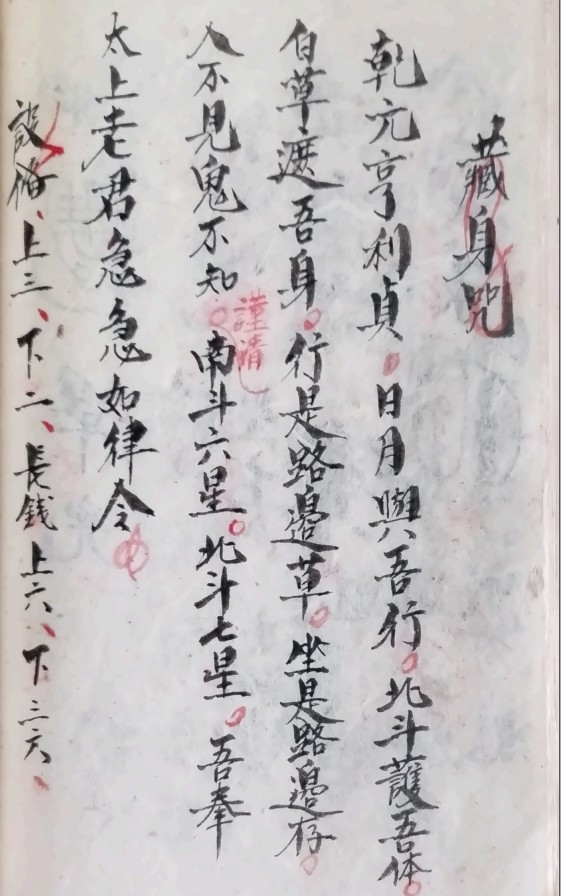 藏身咒
乾元亨利貞。日月與吾行。北斗護吾体。
白草遮吾身。行是路邊草。坐是路邊存。
人不見鬼不知。謹請南斗六星。北斗七星。吾奉
太上老君急急如律令
設俻、上三、下二、長錢上六、下三六、